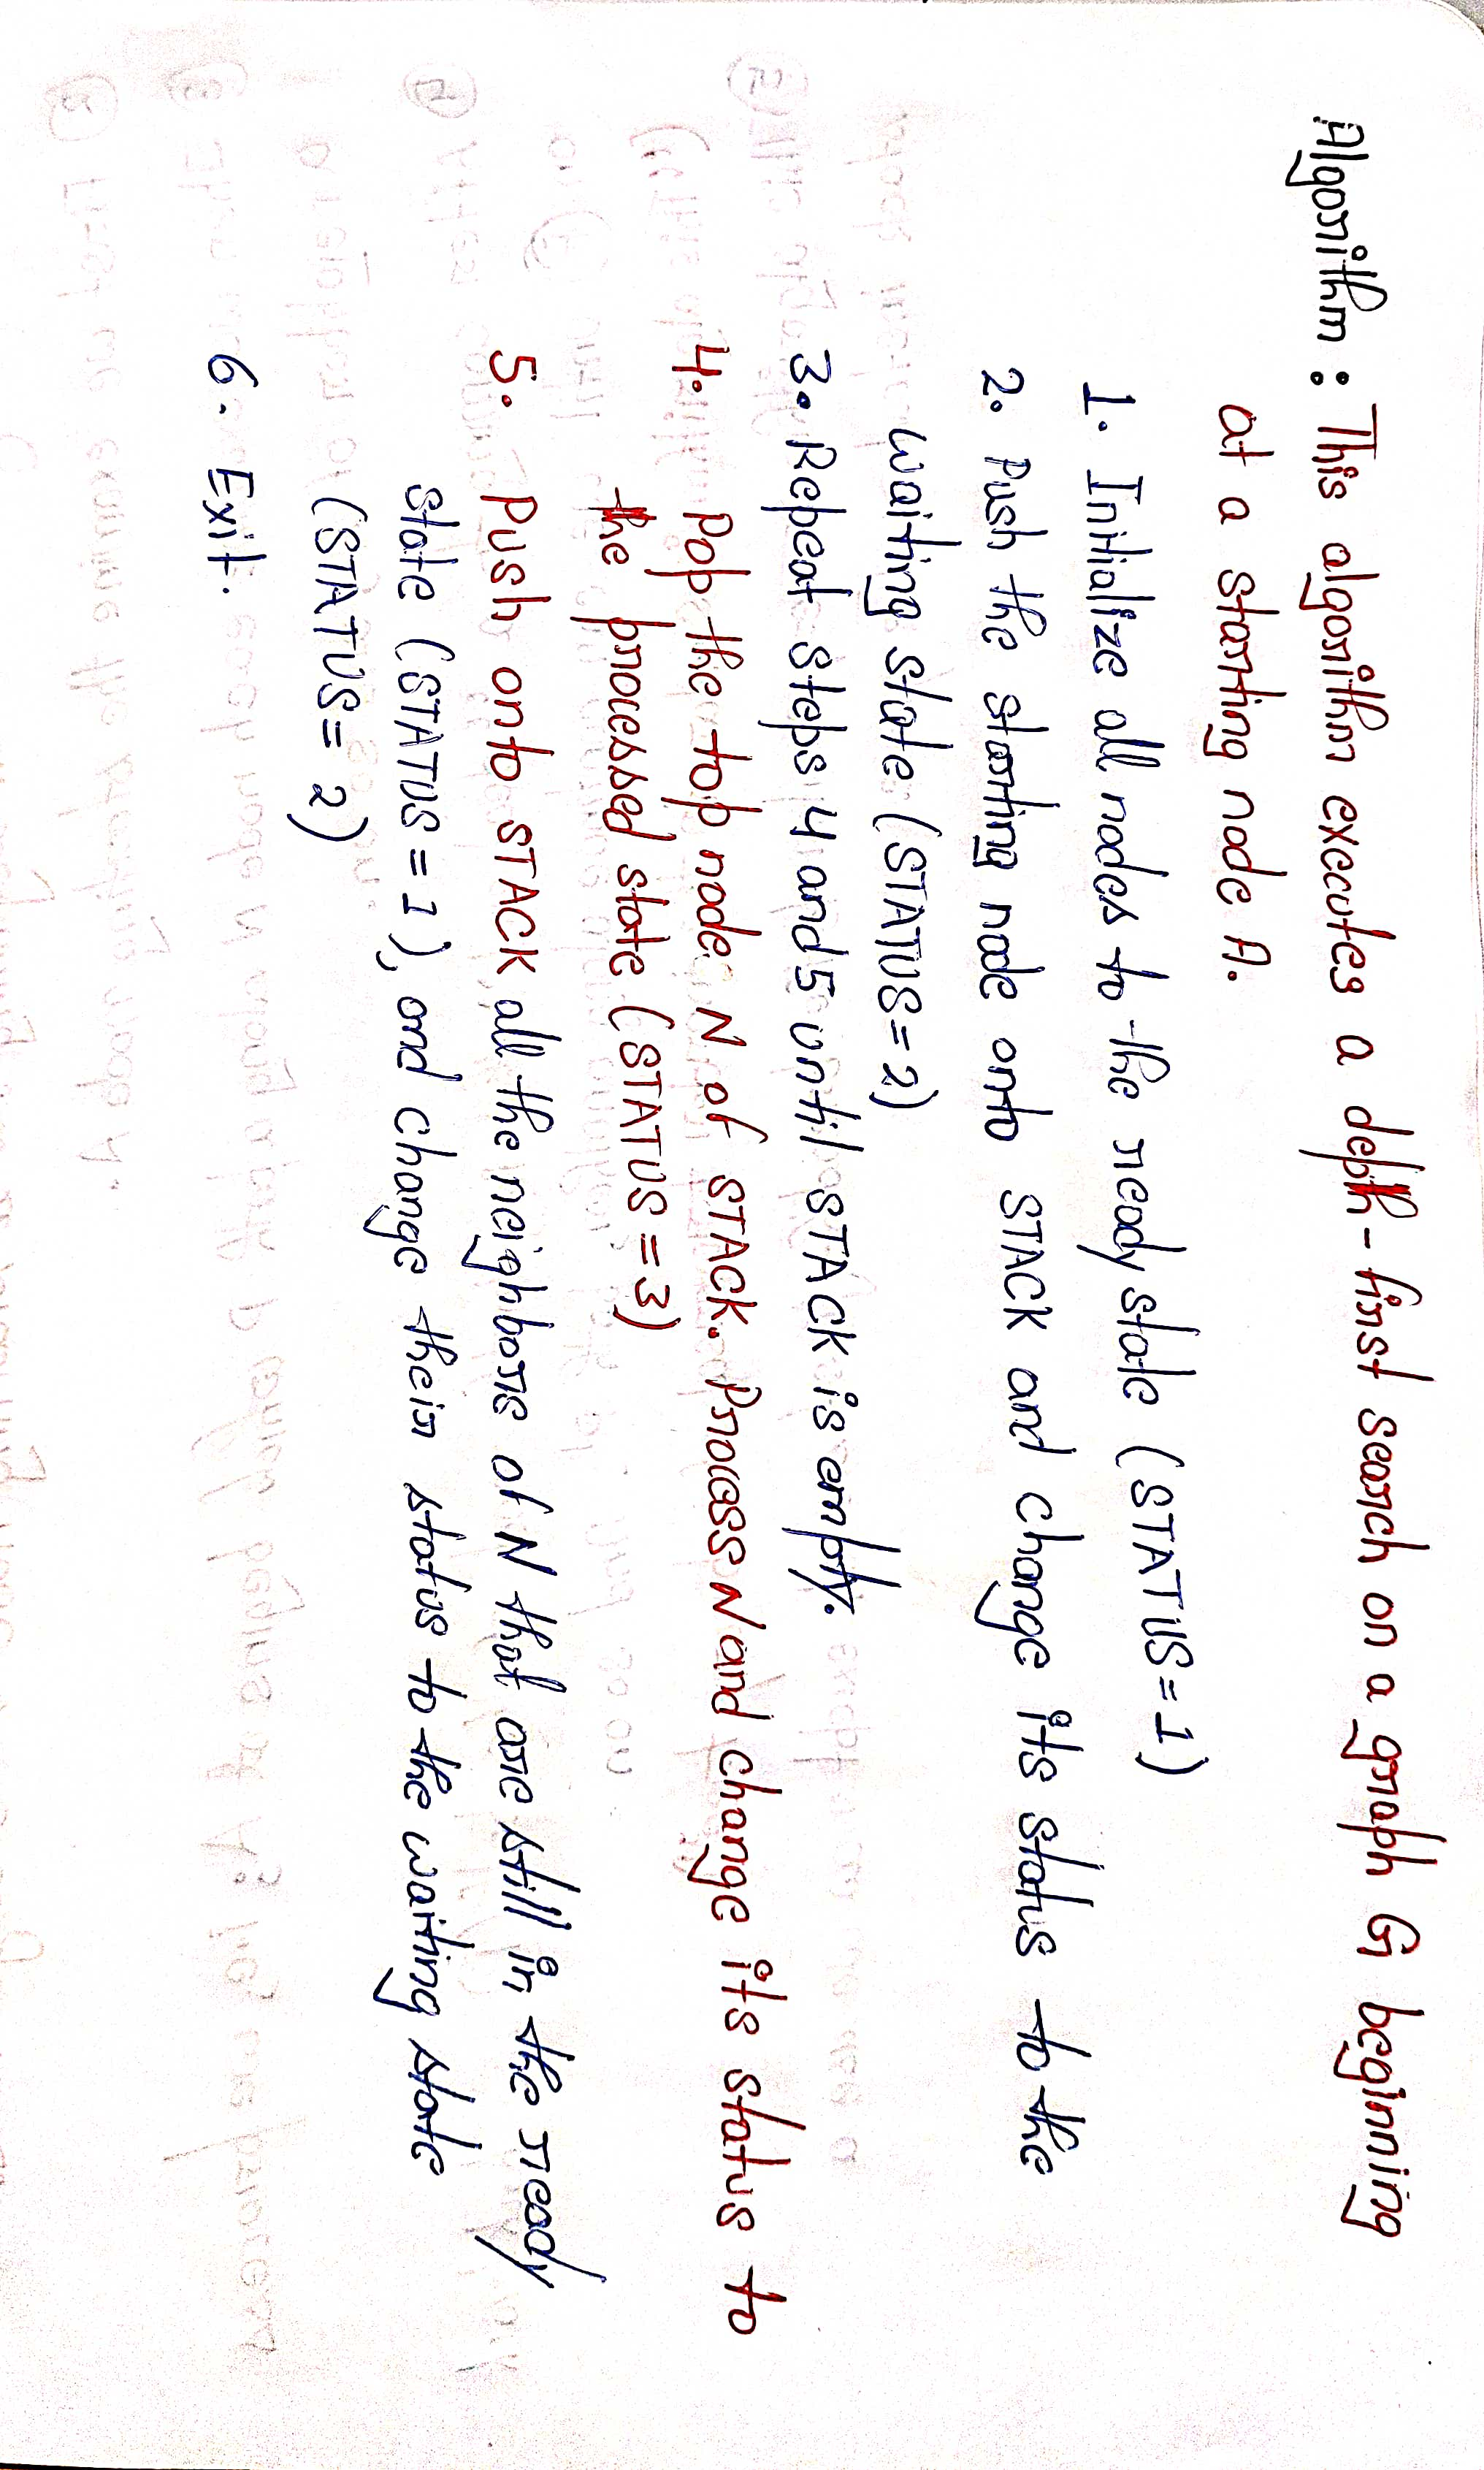 Algorithm : This algorithm executes a depth-first search on a graph G beginning
at a starting node A.
1. Initialize all nodes to the ready state (STATUS = 1)
2. Push the starting node onto STACK and change its status to the
waiting state (STATUS = 2)
3. Repeat steps 4 and 5 until STACK is empty.
4. Pop the top node N of STACK. Process N and change its status to
the processed state (STATUS = 3)
5. Push onto STACK all the neighbors of N that are still in the ready
state (STATUS = 1), and change their status to the waiting state
(STATUS = 2)
6. Exit.